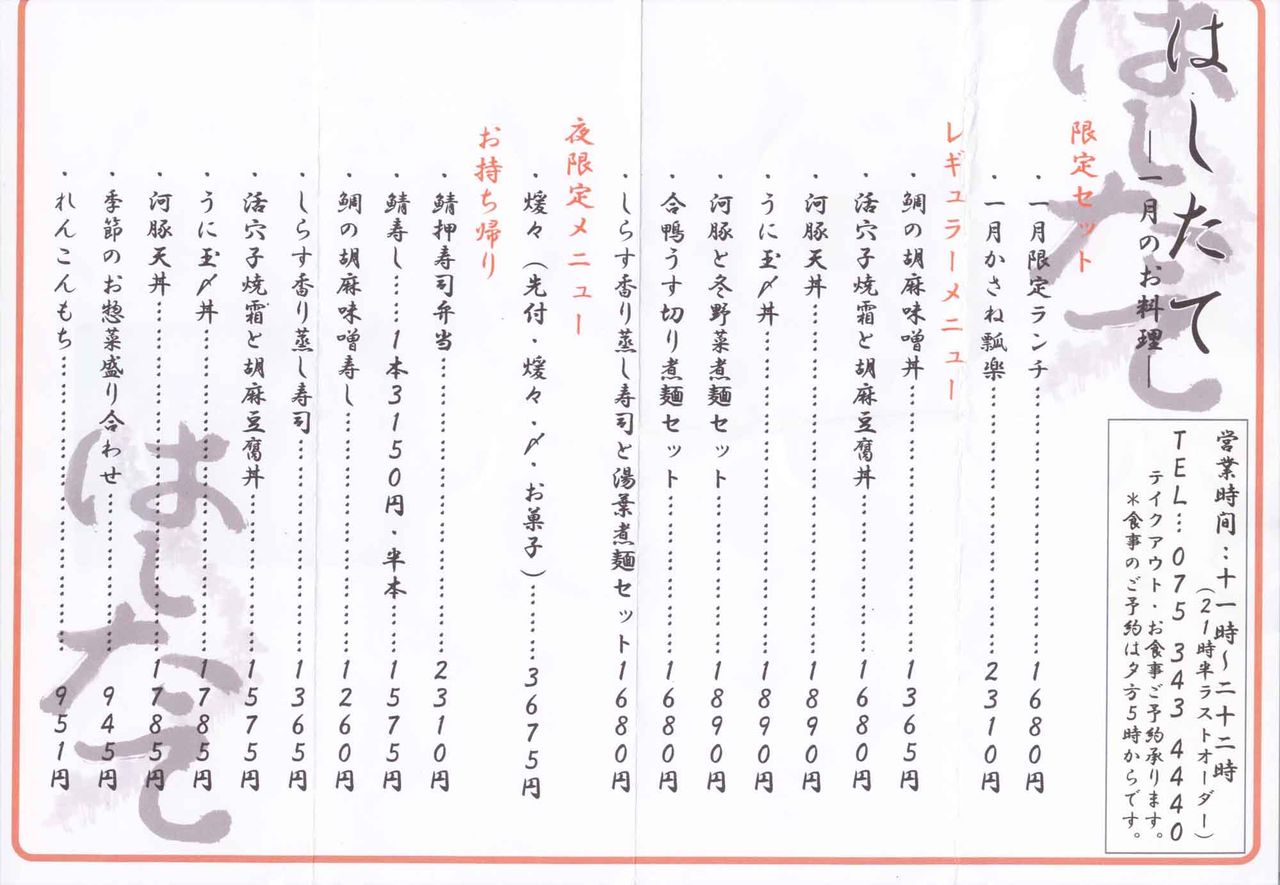 はしたて
―一月のお料理―
営業時間：十一時～二十二時
（21時半ラストオーダー）
TEL…075 343 4440
テイクアウト・お食事ご予約承ります。
＊食事のご予約は夕方5時からです。
限定セット
・一月限定ランチ……………1680円
・一月かさね瓢楽……………2310円
レギュラーメニュー
・鯛の胡麻味噌丼……………1365円
・活穴子焼霜と胡麻豆腐丼……………1680円
・河豚天丼……………1890円
・うに玉〆丼……………1890円
・河豚と冬野菜煮麺セット……………1890円
・合鴨うす切り煮麺セット……………1680円
・しらす香り蒸し寿司と湯葉煮麺セット1680円
夜限定メニュー
・煖々（先付・煖々・〆・お菓子）………3675円
お持ち帰り
・鯖押寿司弁当……………2310円
・鯖寿し……1本3150円・半本……1575円
・鯛の胡麻味噌寿し……………1260円
・しらす香り蒸し寿司……………1365円
・活穴子焼霜と胡麻豆腐丼……………1575円
・うに玉〆丼……………1785円
・河豚天丼……………1785円
・季節のお惣菜盛り合わせ……………945円
・れんこんもち……………951円
はしたて
はしたて